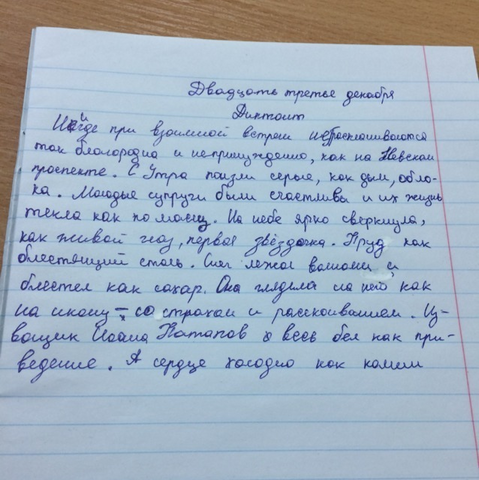 Двадцать третье декабря
Диктант
Нигде при взаимной встречи не раскланиваются
так благородно и непринуждённо, как на Невском
проспекте. С Утра ползли серые, как дым, обло-
ка. Молодые супруги были счастливы и их жизнь
текла как по маслу. На небе ярко сверкнула,
как живой глаз, первая звёздочка. Пруд как
блестящий сталь. Снег лежал волнами и
блестел как сахар. Она глядела на него как
на икону – со страхом и раскаиванием. Из-
возщик Иоана Потапов весь бел как при-
ведение. А сердце холодно как камень